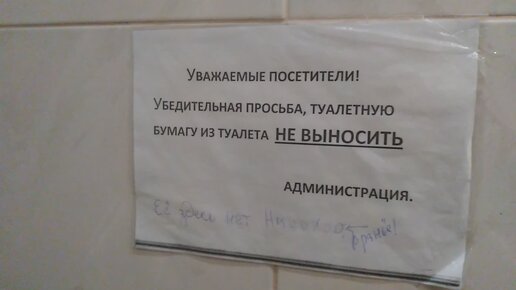 Уважаемые посетители!
Убедительная просьба, туалетную
бумагу из туалета НЕ ВЫНОСИТЬ
администрация.
Её здесь нет
враньё!